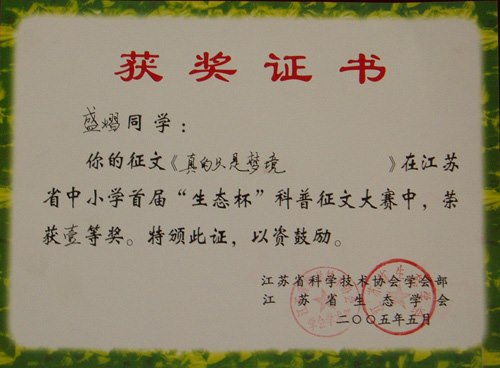 获奖证书
盛熠同学：
你的征文《真的只是梦境》在江苏
省中小学首届“生态杯”科普征文大赛中，荣
获壹等奖。特颁此证，以资鼓励。
江苏省科学技术协会学会部
江苏省生态学会
二〇〇五年五月